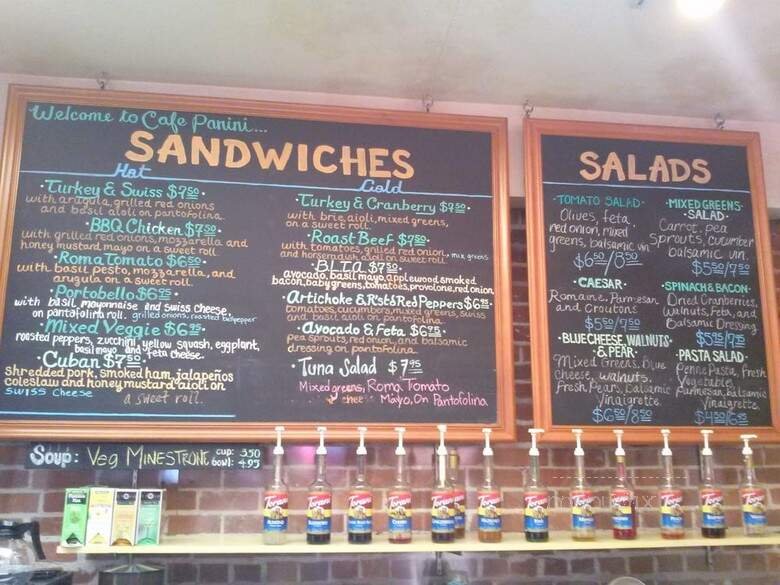 Welcome to Cafe Panini...
SANDWICHES
Hot
·Turkey & Swiss $7.50·
with arugula, grilled red onions
and basil aioli on pantofolina
·BBQ Chicken $7.50·
with grilled red onions, mozzarella and
honey mustard mayo on a sweet roll.
·Roma Tomato $6.50·
with basil pesto, mozzarella, and
arugula on a sweet roll.
·Portobello $6.25
with basil, mayonnaise and swiss cheese,
on pantofolina roll. grilled onions, roasted bell pepper
·Mixed Veggie $6.25
roasted peppers, zucchini, yellow squash, eggplant,
basil mayo and feta cheese.
·Cuban $7.50·
shredded pork, smoked ham, jalapeños
coleslaw and honey mustard aioli on
swiss cheese a sweet roll.
Cold
·Turkey & Cranberry $7.50·
with brie, aioli, mixed greens,
on a sweet roll.
·Roast Beef $7.50·
with tomatoes, grilled red onion, mix greens
and horseradish aioli on sweet roll
·BLTA $7.50·
avocado, basil mayo, applewood smoked
bacon, baby greens, tomatoes, provolone, red onion
·Artichoke & R'st&Red Peppers $6.95
tomatoes, cucumbers, mixed greens, swiss
and basil aioli on pantofolina
·Avocado & Feta $6.75·
pea sprouts, red onion, and balsamic
dressing on pantofolina
·Tuna Salad $7.95
Mixed greens, Roma Tomato
cheese Mayo, On Pantofolina
SALADS
·TOMATO SALAD·
Olives, feta,
red onion, mixed
greens, balsamic vin.
$6.50/8.50
·CAESAR·
Romaine, Parmesan
and Croutons
$5.50/7.50
·BLUE CHEESE, WALNUTS
& PEAR·
Mixed Greens, Blue
cheese, walnuts,
Fresh Pears, Balsamic
Vinaigrette
$6.50/8.50
·MIXED GREENS
·SALAD·
Carrot, pea
Sprouts, cucumber
balsamic vin.
·SPINACH & BACON·
Dried Cranberries,
Walnuts, Feta, and
Balsamic Dressing
·PASTA SALAD·
Penne Pasta, Fresh
Vegetables,
Parmesan, balsamic
Vinaigrette
Soup: Veg MINESTRONE cup: 3.50
bowl: 4.95
Torani
Torani
Torani
Torani
Torani
Torani
Torani
Torani
Torani
Torani
Torani
Torani
Torani